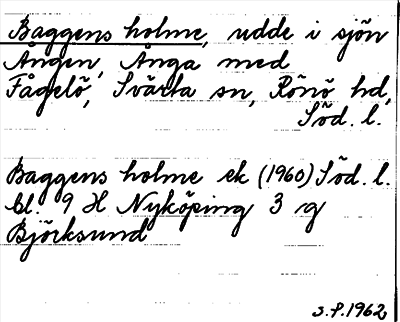 Baggens holme, udde i sjön
Ången, Ånga med
Fågelö, Svärta sn, Rönö hd,
Söd. l.
Baggens holme ek (1960) Söd. l.
bl. 9 H Nyköping 3 g
Björksund
s.P.1962